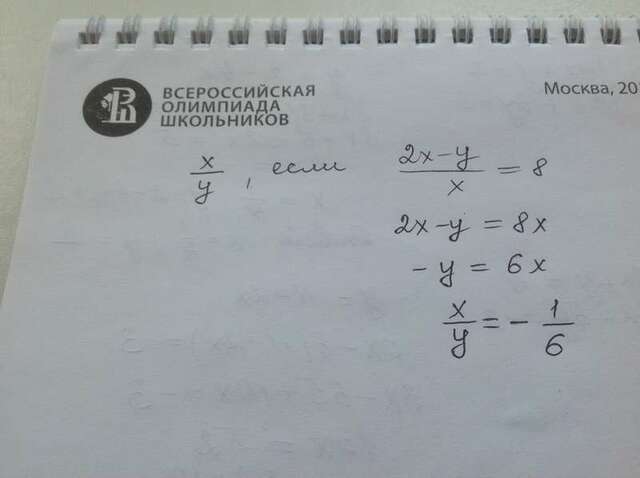 ВСЕРОССИЙСКАЯ
ОЛИМПИАДА
ШКОЛЬНИКОВ
Москва, 20
x/y, если (2x-y)/x = 8
2x-y = 8x
-y = 6x
x/y = -1/6